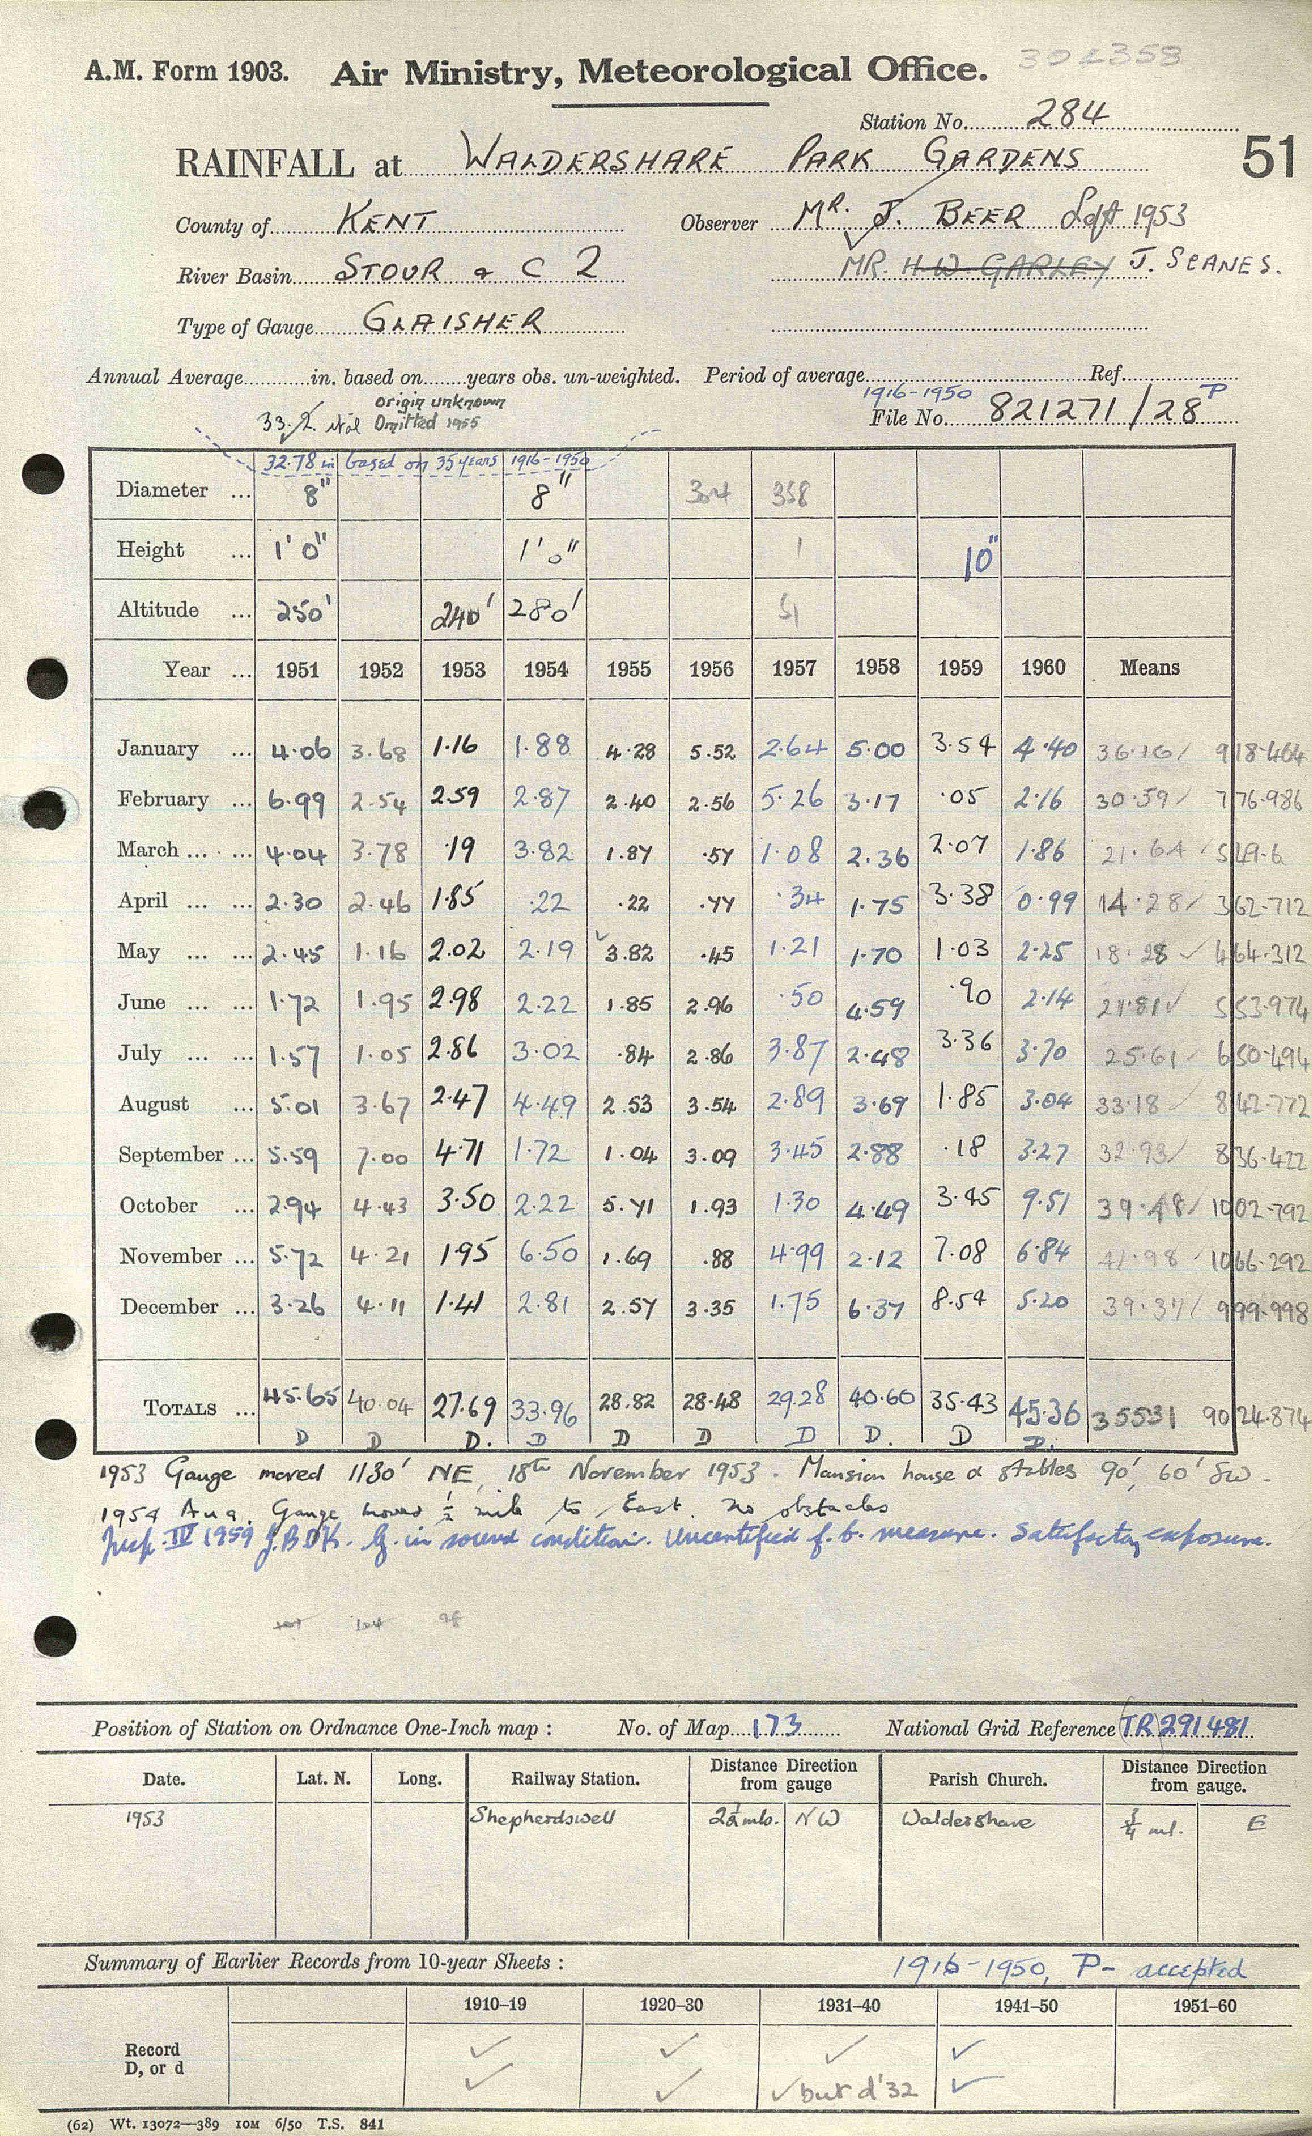 302358
A.M. Form 1903. Air Ministry, Meteorological Office.
Station No. 284
51
RAINFALL at WALDERSHARE PARK GARDENS
County of KENT Observer MR. J. BEER Left 1953
River Basin STOUR & C 2 MR. H.W. GARLEY J. SCANES.
Type of Gauge GLAISHER
Annual Average in. based on years obs. un-weighted. Period of average Ref.
1916-1950
33.2 origin unknown
Omitted 1955
File No. 821271/28 P
32.78 in based on 35 years 1916-1950
Diameter ... 8" 8" 304 358
Height ... 1' 0" 1' 0" 1 10"
Altitude ... 250' 240' 280' 51
Year ... 1951 1952 1953 1954 1955 1956 1957 1958 1959 1960 Means
January ... 4.06 3.68 1.16 1.88 4.28 5.52 2.64 5.00 3.54 4.40 36.16 918.464
February ... 6.99 2.54 2.59 2.87 2.40 2.56 5.26 3.17 .05 2.16 30.59 776.986
March ... ... 4.04 3.78 .19 3.82 1.87 .57 1.08 2.36 2.07 1.86 21.64 549.6
April ... ... 2.30 2.46 1.85 .22 .22 .77 .34 1.75 3.38 0.99 14.28 362.712
May ... ... 2.45 1.16 2.02 2.19 3.82 .45 1.21 1.70 1.03 2.25 18.28 464.312
June ... ... 1.72 1.95 2.98 2.22 1.85 2.96 .50 4.59 .90 2.14 21.81 553.974
July ... ... 1.57 1.05 2.86 3.02 .84 2.86 3.87 2.48 3.36 3.70 25.61 650.494
August ... 5.01 3.67 2.47 4.49 2.53 3.54 2.89 3.69 1.85 3.04 33.18 842.772
September ... 5.59 7.00 4.71 1.72 1.04 3.09 3.45 2.88 .18 3.27 32.93 836.422
October ... 2.94 4.43 3.50 2.22 5.71 1.93 1.30 4.49 3.45 9.51 39.48 1002.792
November ... 5.72 4.21 1.95 6.50 1.69 .88 4.99 2.12 7.08 6.84 41.98 1066.292
December ... 3.26 4.11 1.41 2.81 2.57 3.35 1.75 6.37 8.54 5.20 39.37 999.998
TOTALS ... 45.65 40.04 27.69 33.96 28.82 28.48 29.28 40.60 35.43 45.36 355.31 9024.874
D D D. D D D D D. D D.
1953 Gauge moved 1130' NE, 18th November 1953. Mansion house & stables 90', 60' SW.
1954 Aug. Gauge moved ½ mile to East. No obstacles
Insp. IV 1959 J.B.D.K. G. in sound condition. Uncertified f.b. measure. Satisfactory exposure.
104 98
Position of Station on Ordnance One-Inch map : No. of Map 173 National Grid Reference (TR) 291481
Date. Lat. N. Long. Railway Station. Distance Direction from gauge Parish Church. Distance Direction from gauge.
1953 Shepherdswell 2½ mls. NW Waldershare ¾ ml. E
Summary of Earlier Records from 10-year Sheets : 1916-1950, P- accepted
1910-19 1920-30 1931-40 1941-50 1951-60
Record ✓ ✓ ✓ ✓
D, or d ✓ ✓ ✓ but d '32 ✓
(62) Wt. 13072—389 10M 6/50 T.S. 841